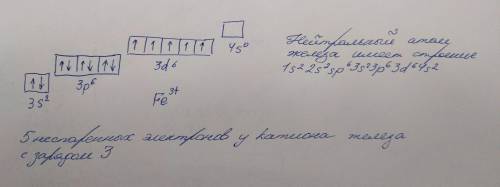 4s⁰
3d⁶
3p⁶
3s²
Fe³⁺
Нейтральный атом
железа имеет строение
1s² 2s² sp⁶ 3s² 3p⁶ 3d⁶ 4s²
5 неспаренных электронов у катиона железа
с зарядом 3